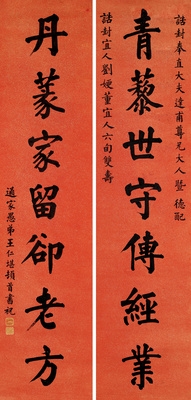 誥封奉直大夫達甫尊兄大人暨 德配
誥封宜人劉媪董宜人六旬雙壽
青藜世守傳經業
丹篆家留卻老方
通家愚弟王仁堪頓首書祝